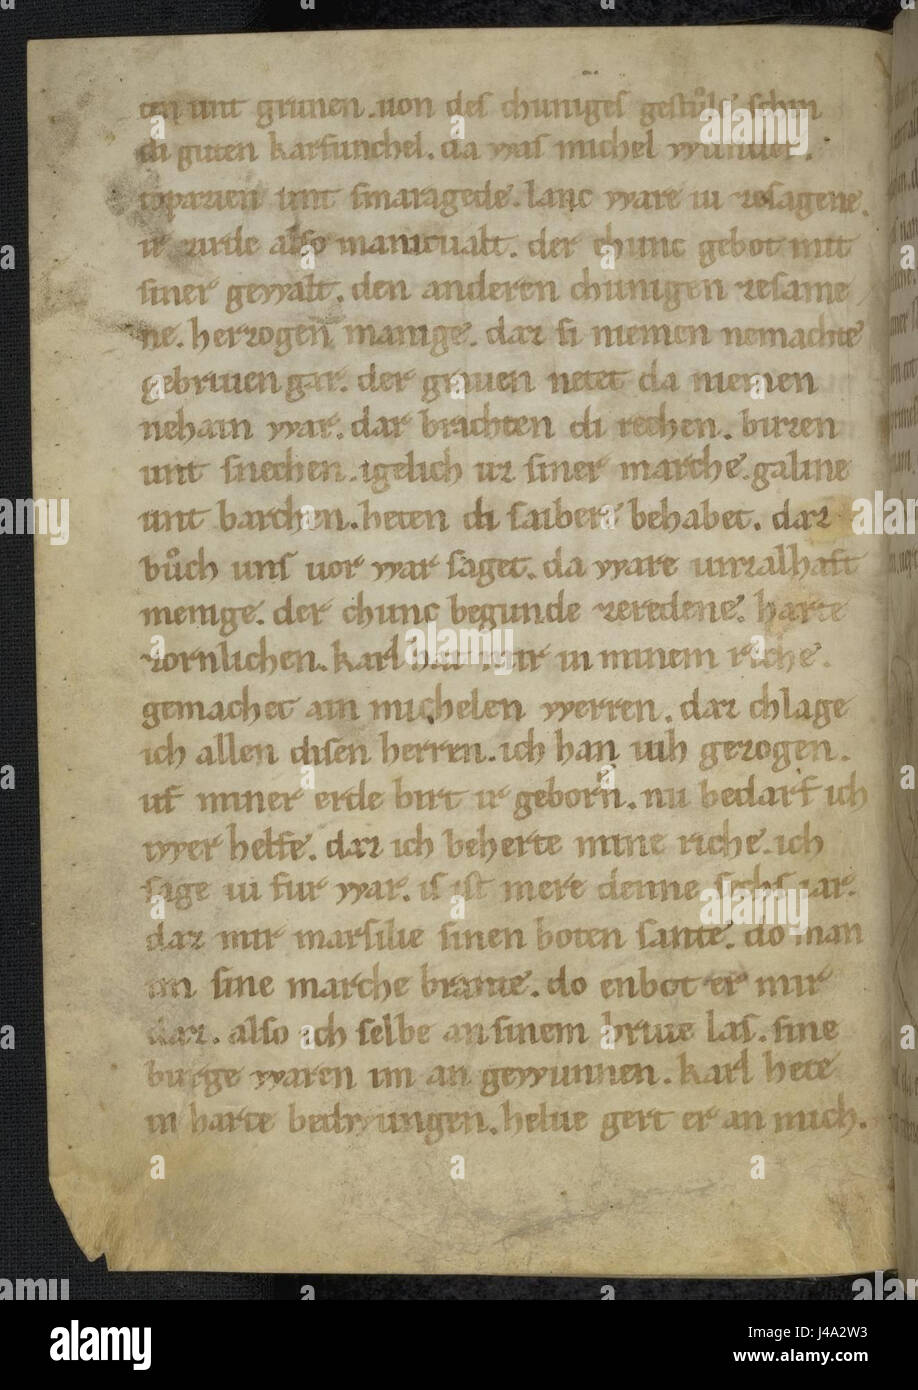 ten unt grunen. uon des chuniges gestůle schin
di guten karfunchel. da was michel wunder.
topazien unt smaragede. lanc ware iu zesagene.
ir zirde also manicualt. der chunc gebot mit
siner gewalt. den anderen chunigen zesame
ne. herzogen manige. daz si niemen nemachte
gebriuen gar. der grauen netet da niemen
nehain war. dar brachten di rechen. birzen
unt snechen. igelich uz siner marche. galine
unt barchen. heten di saibere behabet. daz
bůch uns uor war saget. da ware unzalhaft
menige. der chunc begunde zeredene. harte
zornlichen. karl hat mir in minem riche.
gemachet ain michelen werren. daz chlage
ich allen disen herren. ich han uih gezogen.
uf miner erde birt ir geborn. nu bedarf ich
iwer helfe. daz ich beherte mine riche. ich
sage iu fur war. is ist mere denne sechs iar.
daz mir marsilie sinen boten sante. do man
im sine marche brante. do enbot er mir
daz. also ich selbe an sinem briue las. sine
burge waren im an gewunnen. karl hete
in harte bedwungen. helue gert er an mich.
alamy
Image ID: J4A2W3
www.alamy.com